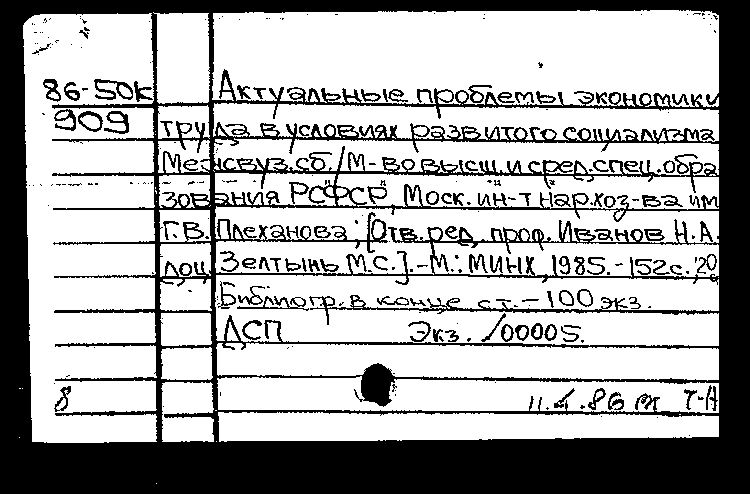 86-50к Актуальные проблемы экономики
909 труда в условиях развитого социализма
Межвуз.сб./М-во высш. и сред. спец. обра
зования РСФСР, Моск. ин-т нар. хоз-ва им
Г.В. Плеханова; [Отв. ред. проф. Иванов Н.А.
доц. Зелтынь М.С.].-М.: МИНХ, 1985.-152с., 20
Библиогр. в конце ст.-100 экз.
ДСП Экз. /00005.
8 86 Т-А